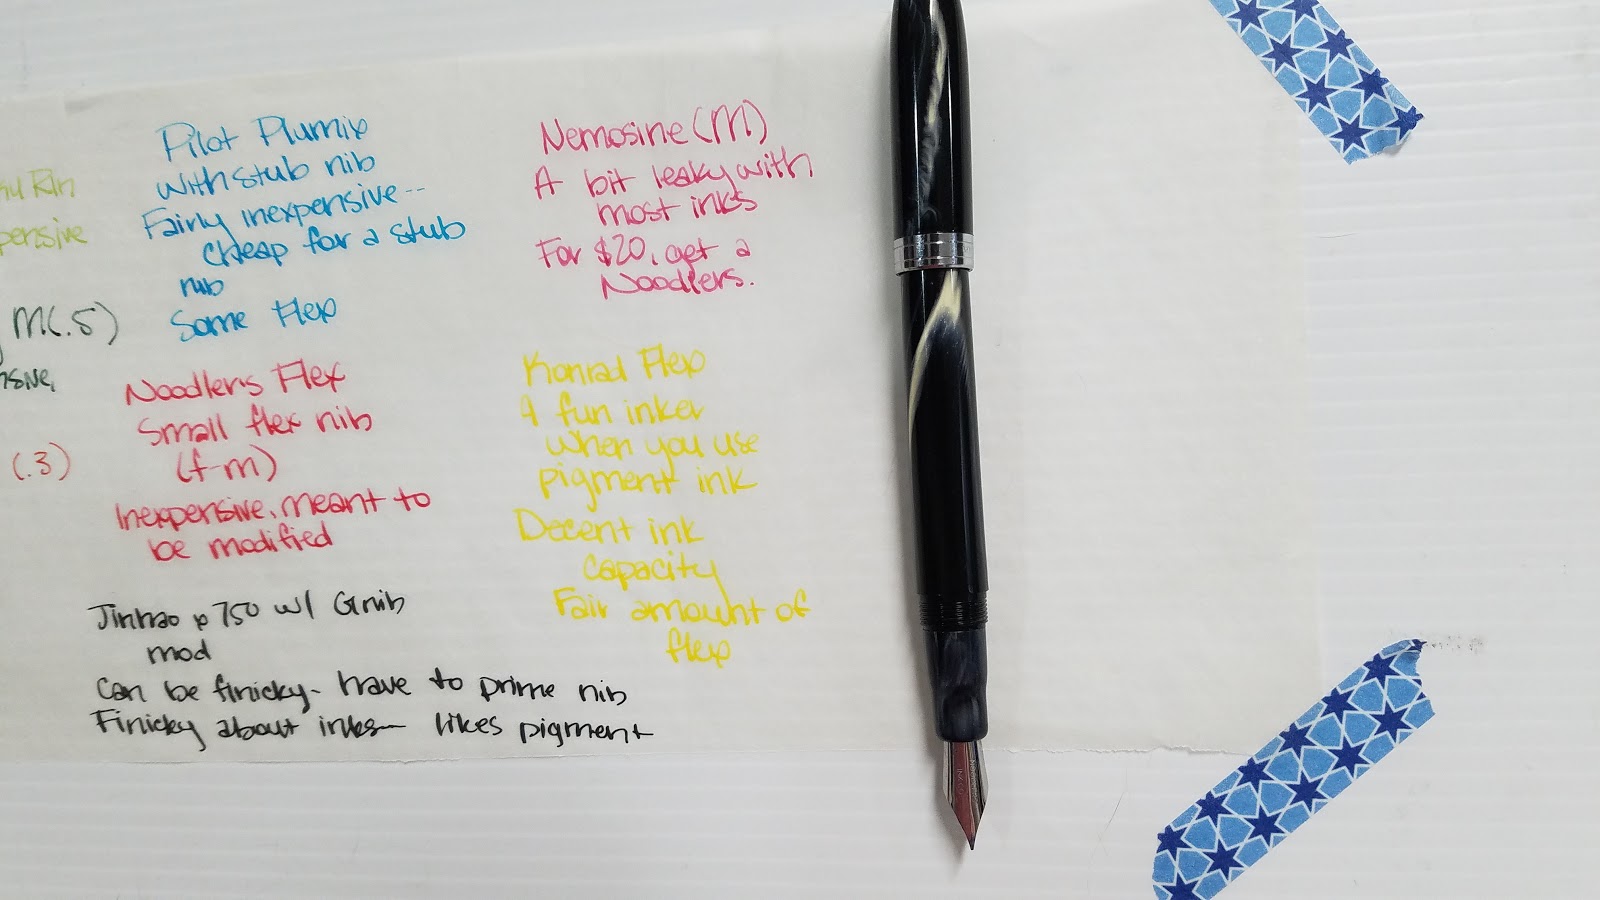 Pilot Plumix
with stub nib
Fairly inexpensive--
cheap for a stub
nib
Some Flex
Nemosine (M)
A bit leaky with
most inks
For $20, get a
Noodlers.
pensive
M(.5)
(.3)
Noodlers Flex
Small flex nib
(f-m)
Inexpensive, meant to
be modified
Konrad Flex
A fun inker
when you use
pigment ink
Decent ink
capacity
Fair amount of
flex
Jinhao x750 w/ G nib
mod
Can be finicky- have to prime nib
Finicky about inks- likes pigment